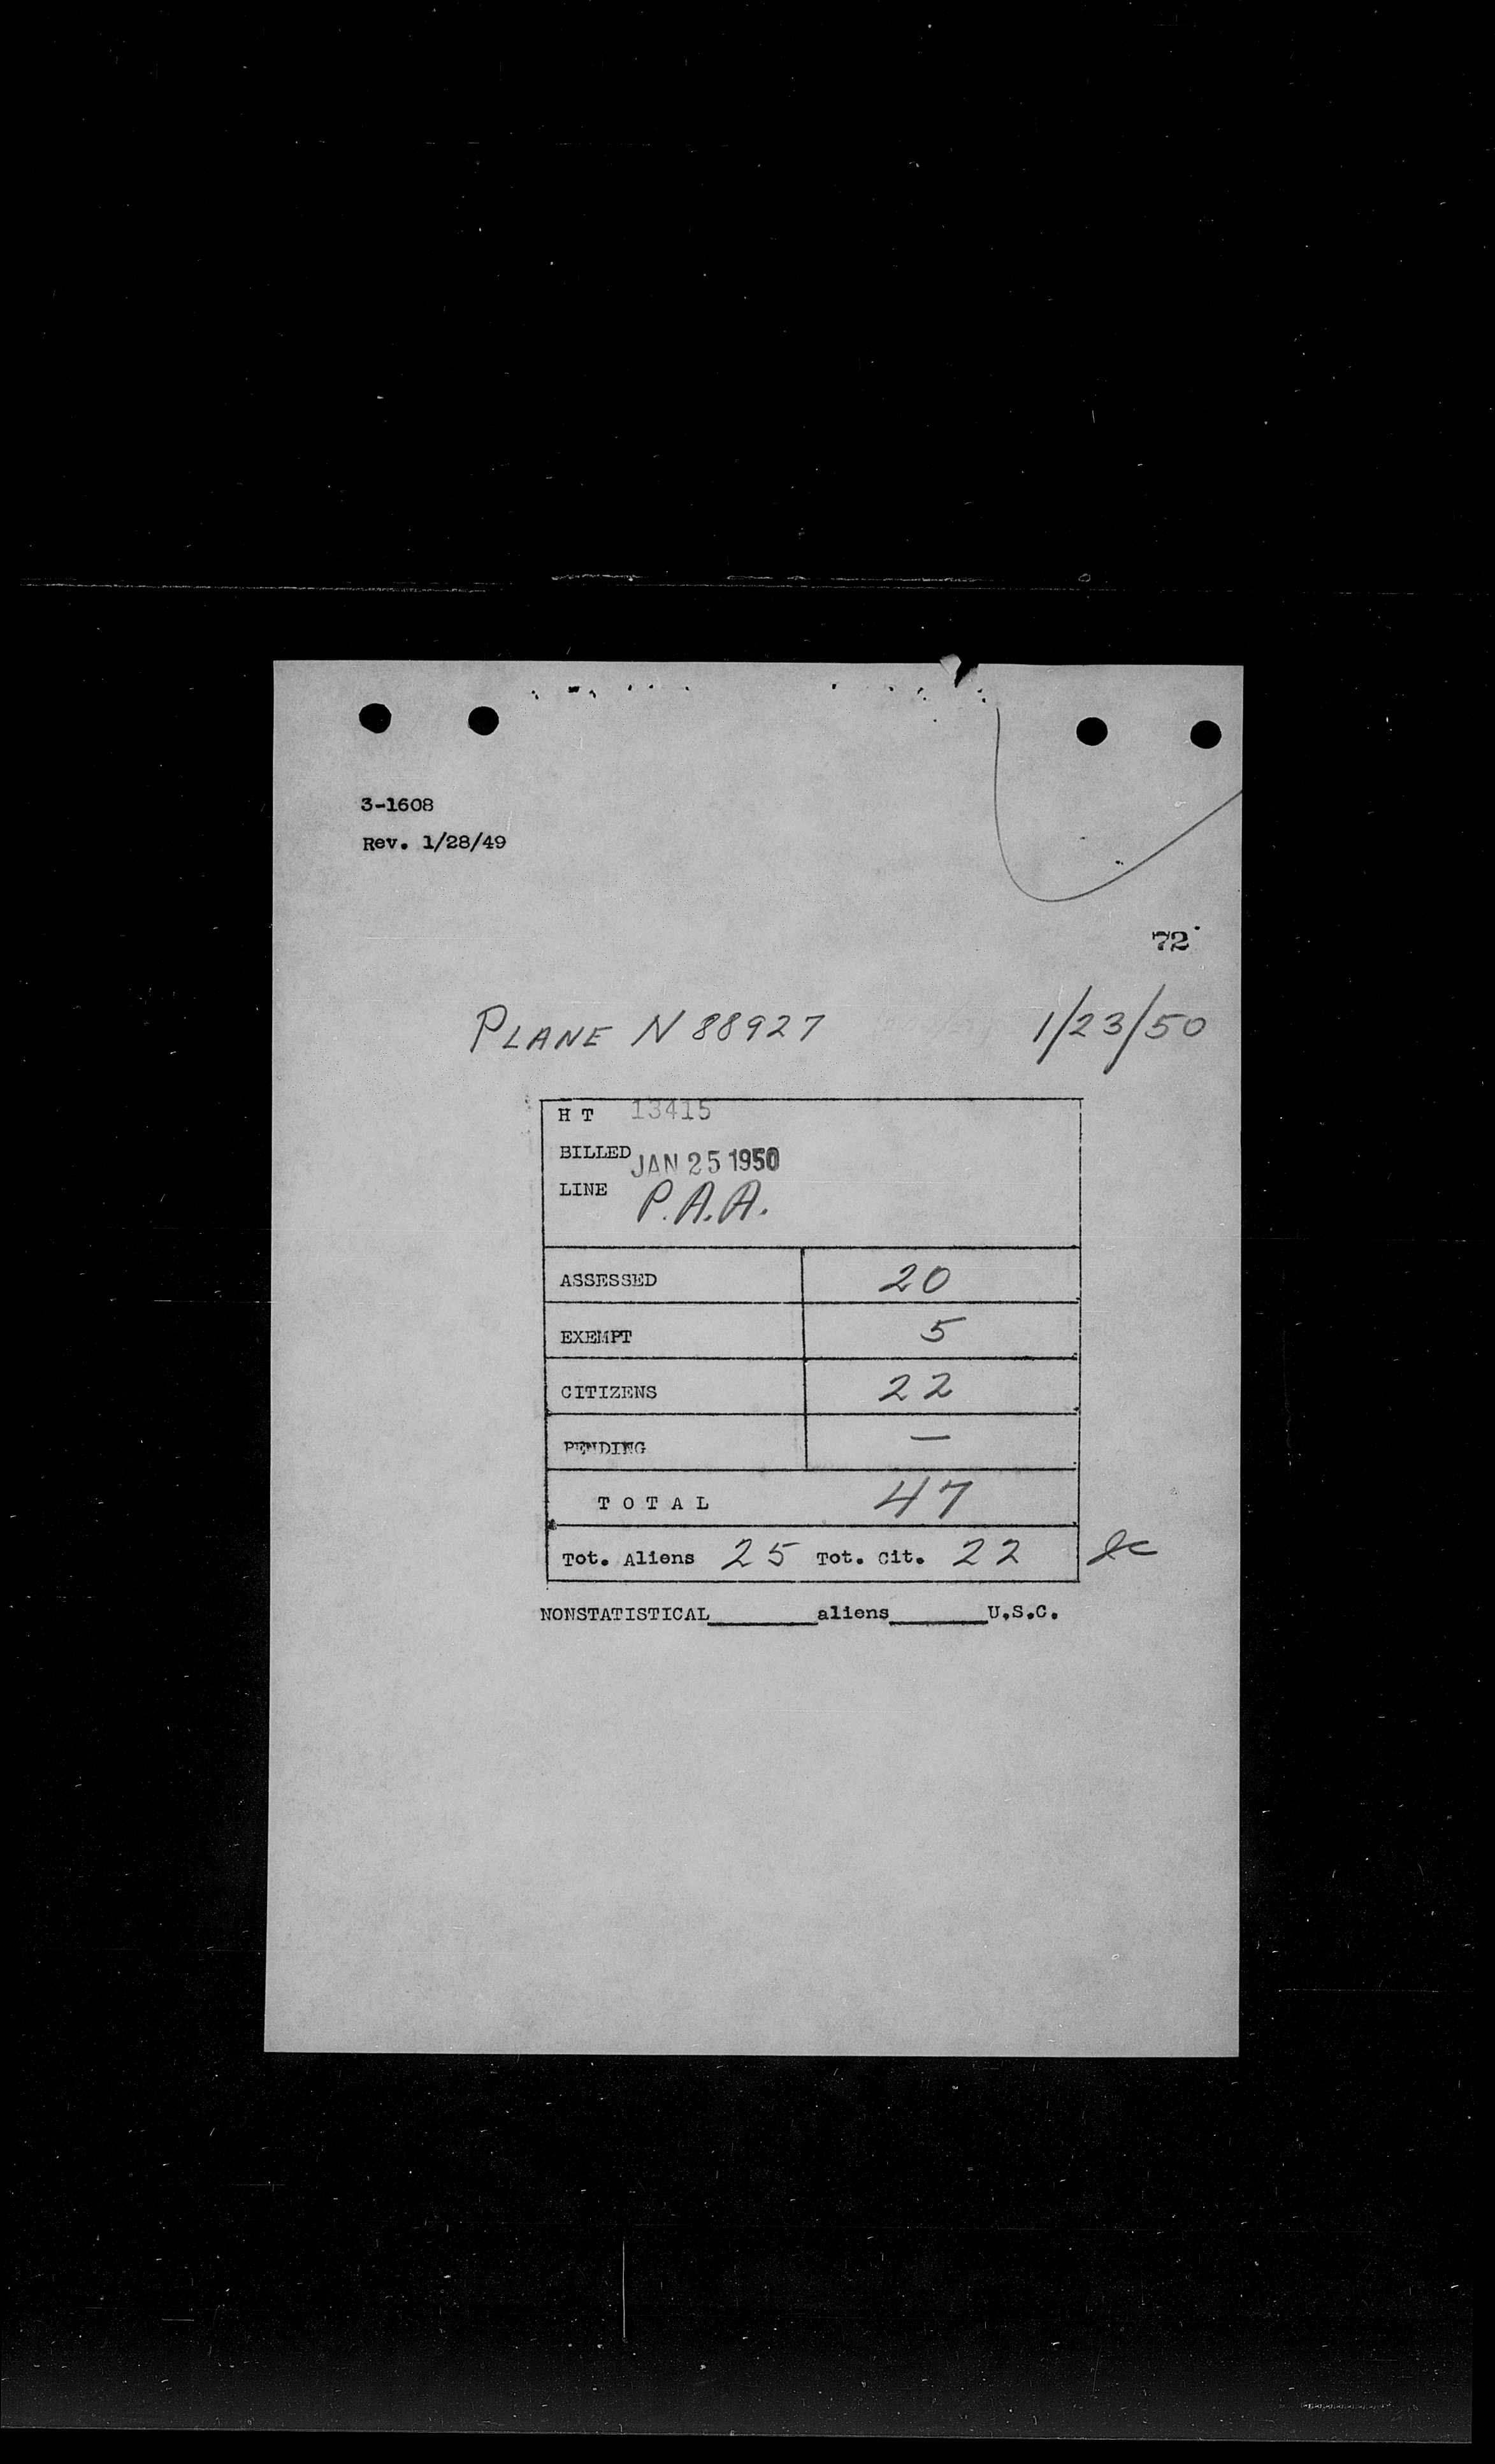 3-1608
Rev. 1/28/49
72
PLANE N 88927 1/23/50
H T 13415
BILLED JAN 25 1950
LINE P.A.A.
ASSESSED 20
EXEMPT 5
CITIZENS 22
PENDING —
T O T A L 47
Tot. Aliens 25 Tot. Cit. 22
NONSTATISTICAL________aliens_______U.S.C.